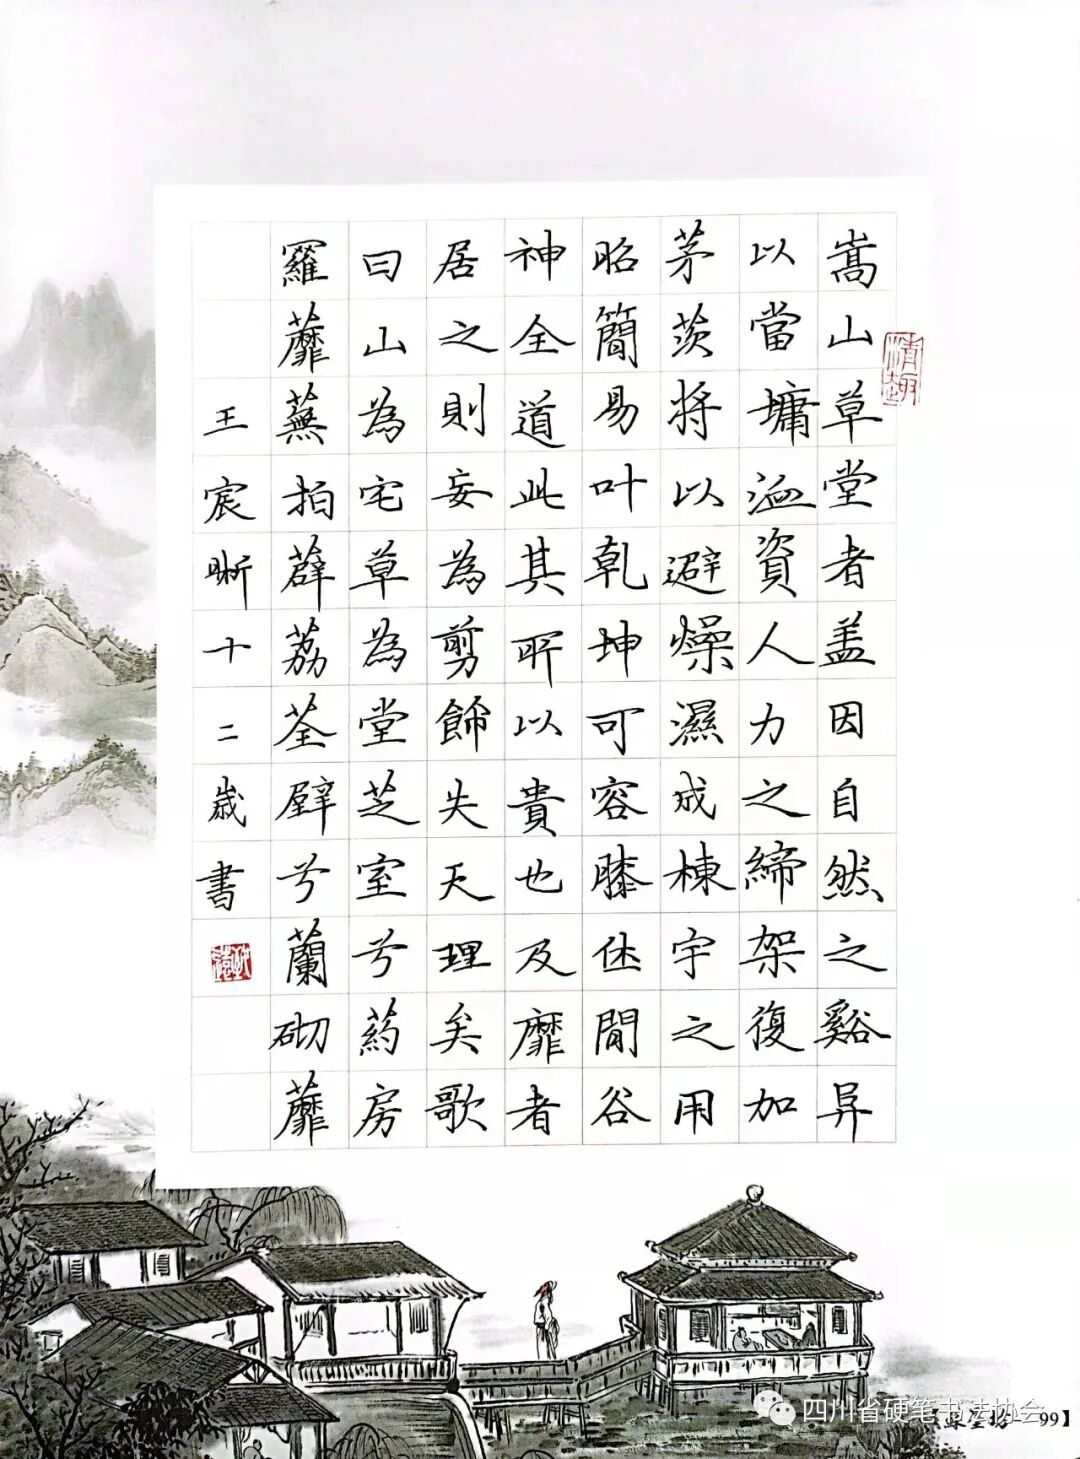 嵩山草堂者盖因自然之谿异
以當墉洫資人力之締架復加
茅茨將以避燥濕成棟宇之用
昭簡易叶乾坤可容膝休閒谷
神全道此其所以貴也及靡者
居之則妄為剪飾失天理矣歌
曰山為宅草為堂芝室兮药房
羅蘼蕪拍薜荔荃壁兮蘭砌蘼
王宸晰十二歲書
情趣
四川省硬笔书法协会
99】